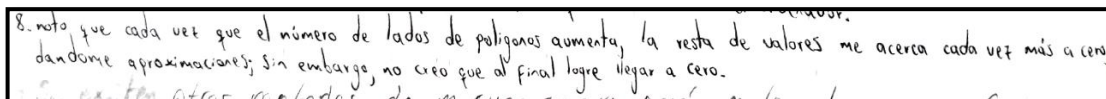 8. noto, que cada vez que el número de lados de poligonos aumenta, la resta de valores me acerca cada vez más a cero
dandome aproximaciones; sin embargo, no creo que al final logre llegar a cero.